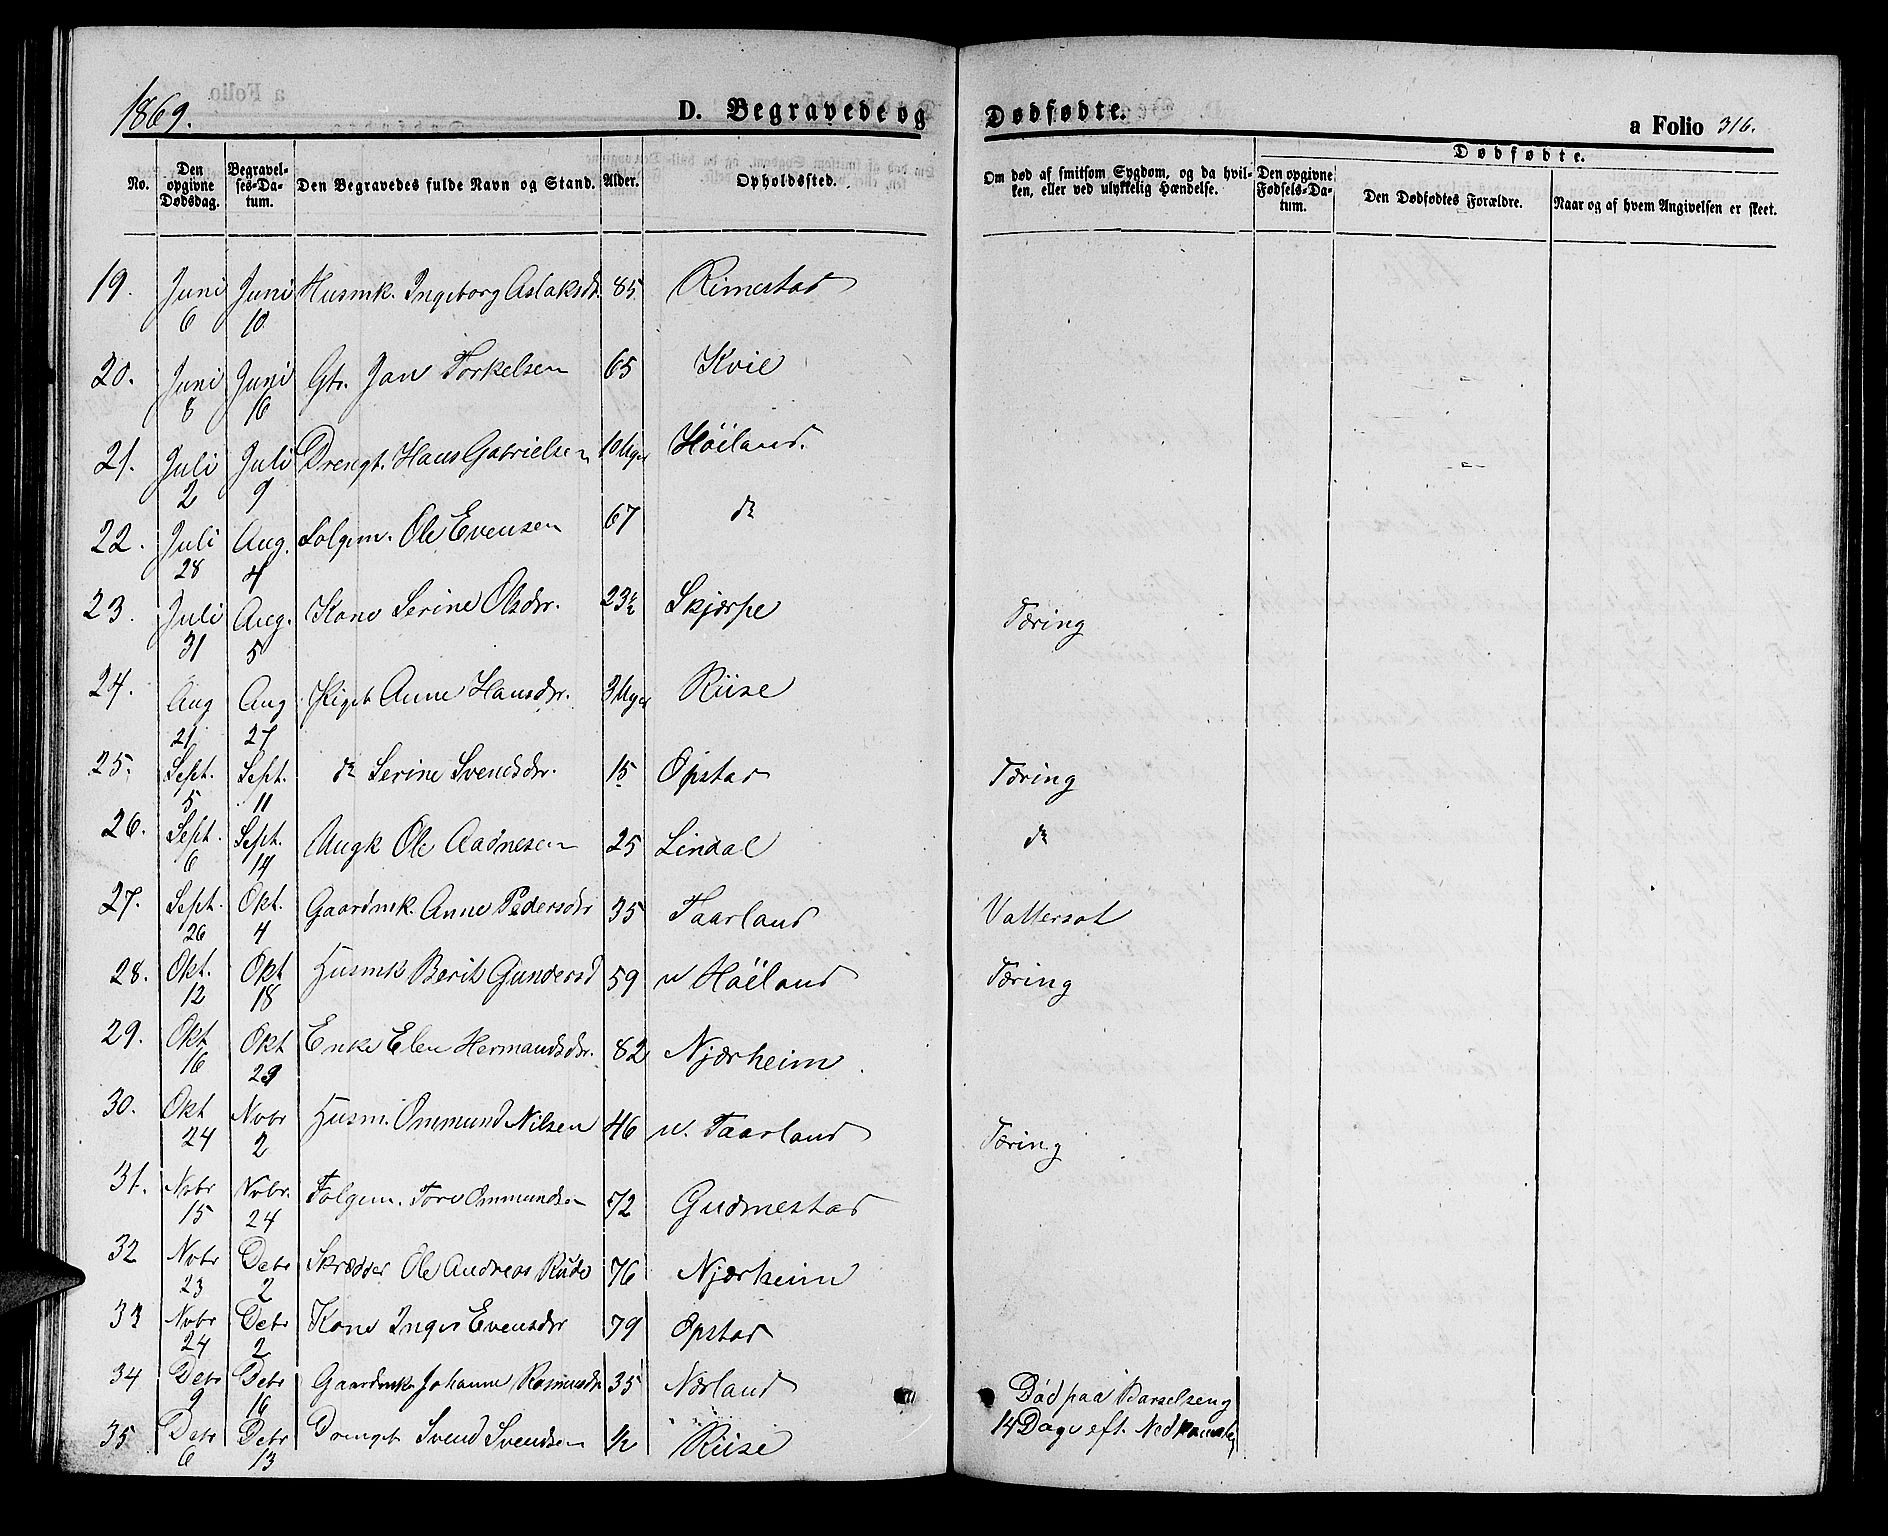 1869.
D. Begravede og Dødfødte.
a Folio 316.
No. Den opgivne Dødsdag. Begravelses-Datum. Den Begravedes fulde Navn og Stand. Alder. Opholdssted. Om død af smitsom Sygdom, og da hvilken, eller ved ulykkelig Hændelse. Dødfødte. Den opgivne Fødsels-Datum. Den Dødfødtes Forældre. Naar og af hvem Angivelsen er skeet.
19. Juni 6 Juni 10 Husmk. Ingeborg Aslaksdr. 85 Rimestad
20. Juni 8 Juni 16 Gtr. Jan Torkelsen 65 Kvie
21. Juli 2 Juli 9 Drengb. Hans Gabrielsen 10 Uger Höiland.
22. Juli 28 Aug. 4 Folgem. Ole Evensen 67 do
23. Juli 31 Aug. 5 Kone Serine Olsdr. 23½ Skjærpe Tæring
24. Aug 21 Aug 27 Pigeb Anne Hansdr. 3 Uger Riise
25. Sept. 5 Sept. 11 do Serine Svendsdr. 15 Opstad Tæring
26. Sept. 6 Sept. 14 Ungk Ole Aadnesen 25 Lindal do
27. Sept. 26 Okt. 4 Gaardmk. Anne Pedersdr 35 Taarland Vattersot
28. Okt. 12 Okt 18 Husmk Berit Gundersd 59 u Höiland Tæring
29. Okt 16 Okt 29 Enke Elen Hermandsdr. 82 Njærheim
30. Okt 24 Novbr 2 Husm. Ommund Nilsen 46 u. Taarland Tæring
31. Novbr 15 Novbr. 24 Folgem. Tore Ommundsen 72 Gudmestad
32 Novbr 23 Debr 2 Skrædder Ole Andreas Rude 76 Njærheim
33 Novbr 24 Debr 2 Kone Inger Evensdr 79 Opstad
34 Debr 9 Debr 16 Gaardmk Johanne Rasmusdr 35 Nærland Död paa Barselseng
14 Dage eft. Nedkomsten
35 Debr 6 Debr 13 Drengeb Svend Svendsen ½ Riise